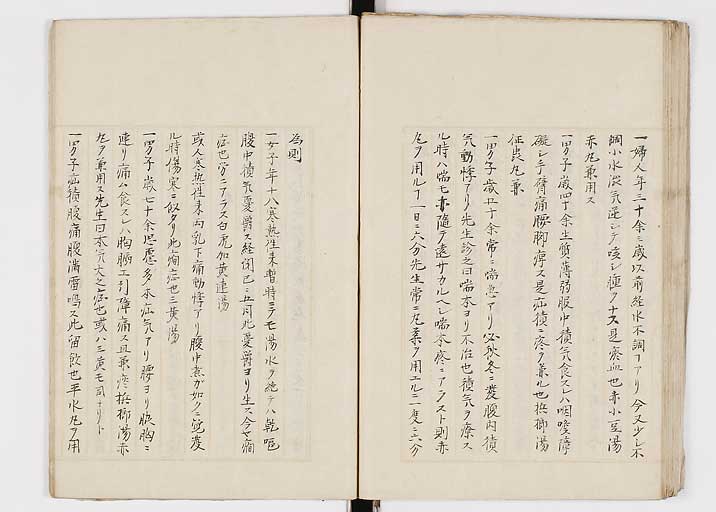 一婦人年三十余三歳以前経水不調フアリ今又少シ不
調小水渋気逆シテ咳シ種クナス是瘀血也赤小豆湯
赤丸兼用ス
一男子歳四十余生質薄弱腹中積気食スレハ咽喉障
礙シテ臂痛腰脚痺ス是疝積ニ疼ヲ兼ル也檳榔湯
征畏丸兼
一男子歳五十余常ニ喘急アリ必秋冬ニ発腹内積
気動悸アリ先生診之曰喘本ヨリ不治也積気ヲ療ス
ル時ハ喘モ亦随テ遠サカルヘシ喘本疼ニアラスト則赤
丸ヲ用ルフ一日ニ六分先生常ニ丸薬ヲ用エル一度ニ六分
為則
一女子年十八寒熱往来暫時ニテモ湯水ヲ絶テハ乾嘔
腹中積気憂鬱ス経閉已ニ五月此憂鬱ヨリ生ス今ヤ癇
症也労ニアラス白虎加黄連湯
或人寒熱往来両乳下痛動悸アリ腹中煮カ如クニ覚発
ル時傷寒ニ似タリ此癇症也三黄湯
一男子歳七十余思慮多本疝気アリ腰ヨリ胸ニ
連リ痛ム食スレハ胸膈エ引障痛ス且兼疼檳榔湯赤
丸ヲ兼用ス先生曰本気欠之症也或ハ三黄モ可ナリト
一男子疝積腹痛腹満雷鳴ス此留飲也平水丸ヲ用